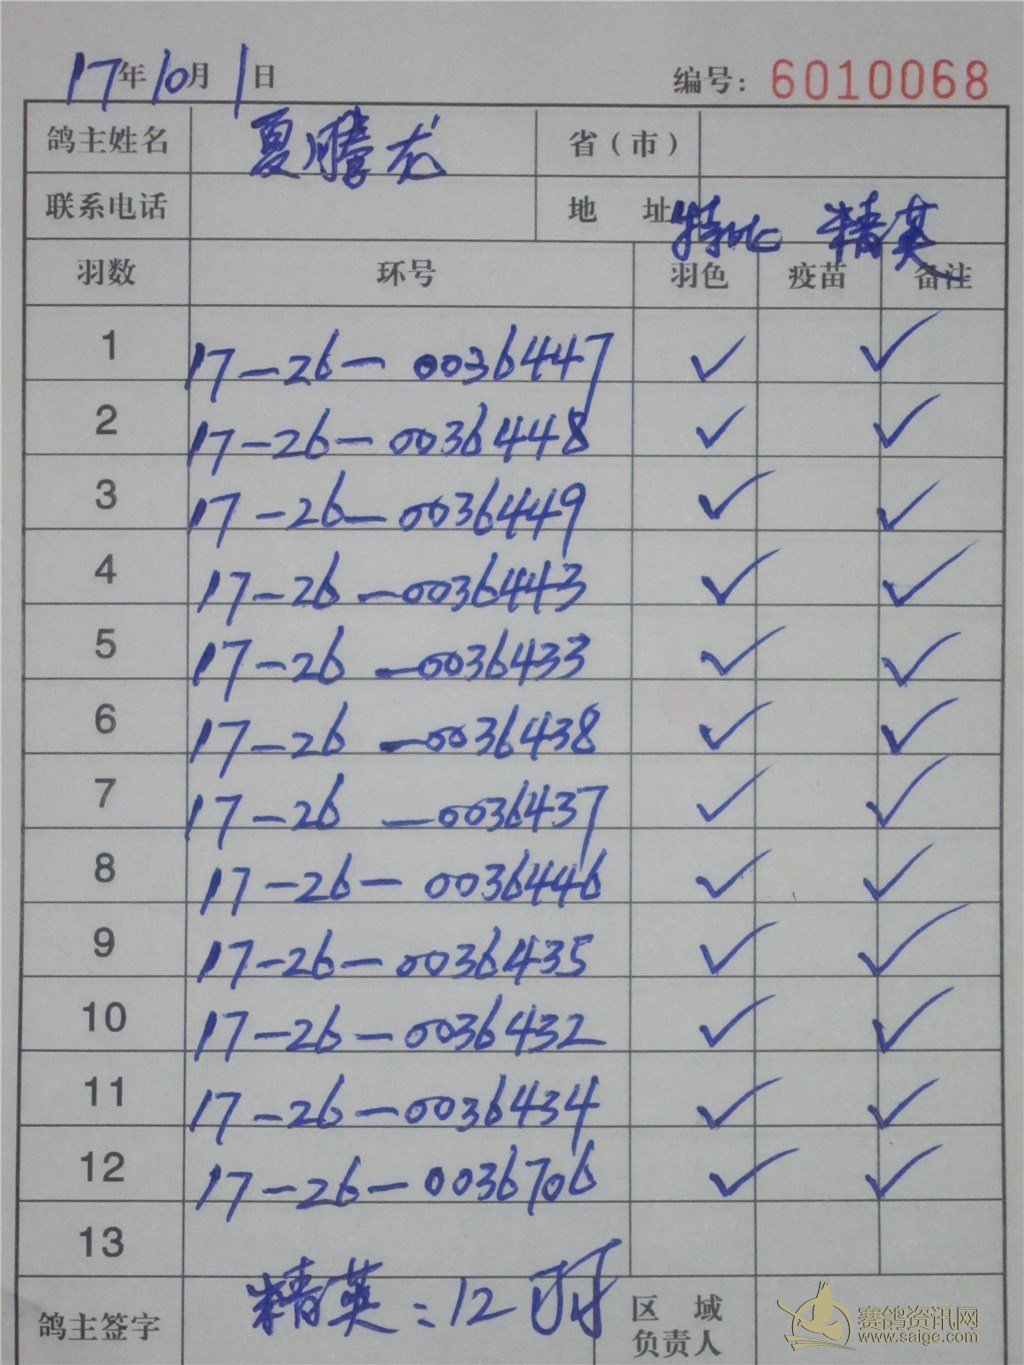 17年10月1日 编号：6010068
鸽主姓名 夏腾龙 省（市）
联系电话 地 址 特比 精英
羽数 环号 羽色 疫苗 备注
1 17-26-0036447 ✓ ✓
2 17-26-0036448 ✓ ✓
3 17-26-0036449 ✓ ✓
4 17-26-0036443 ✓ ✓
5 17-26-0036433 ✓ ✓
6 17-26-0036438 ✓ ✓
7 17-26-0036437 ✓ ✓
8 17-26-0036446 ✓ ✓
9 17-26-0036435 ✓ ✓
10 17-26-0036432 ✓ ✓
11 17-26-0036434 ✓ ✓
12 17-26-0036706 ✓ ✓
13
鸽主签字 精英：12羽 区 域
负责人
赛鸽资讯网
www.saige.com